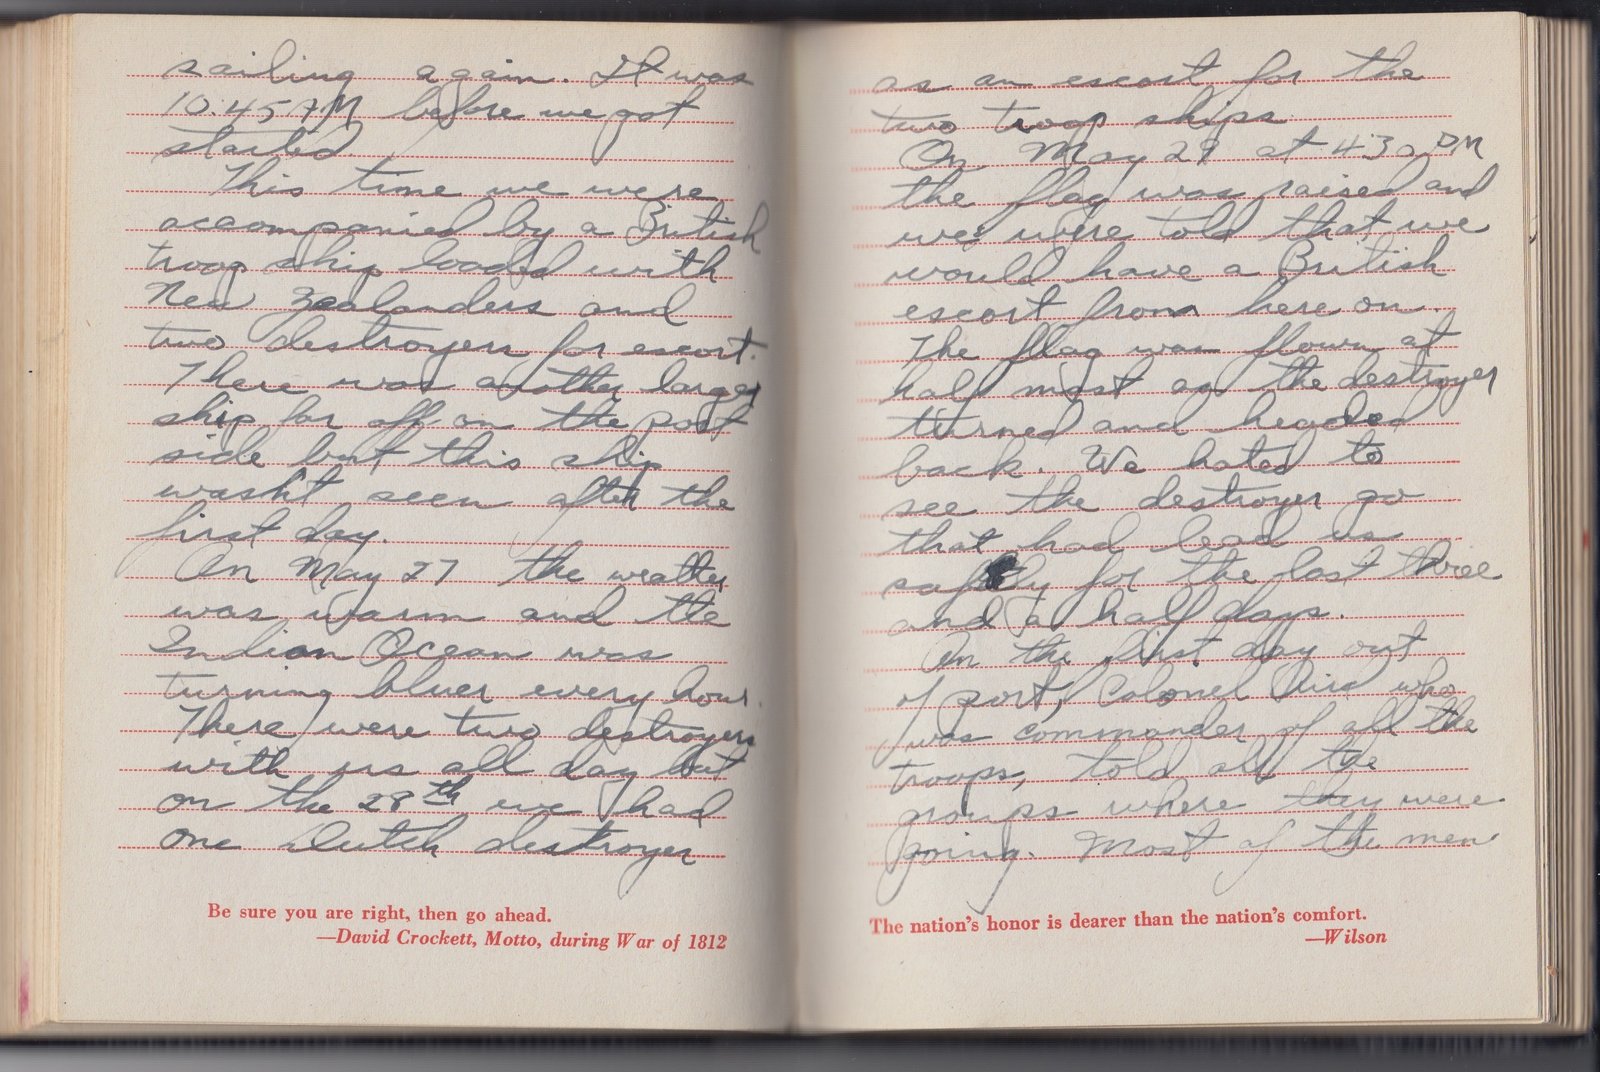 sailing again. It was
10:45 PM before we got
started
This time we were
accompanied by a British
troop ship loaded with
New Zealanders and
two destroyers for escort.
There was another larger
ship far off on the port
side but this ship
wasn't seen after the
first day.
On May 27 the weather
was warm and the
Indian Ocean was
turning bluer every hour.
There were two destroyers
with us all day but
on the 28th we had
one Dutch destroyer
Be sure you are right, then go ahead.
—David Crockett, Motto, during War of 1812
as an escort for the
two troop ships.
On May 29 at 430 PM
the flag was raised and
we were told that we
would have a British
escort from here on.
The flag was flown at
half mast as the destroyer
turned and headed
back. We hated to
see the destroyer go
that had lead us
safely for the last three
and a half days.
On the first day out
of port, Colonel who
was commander of all the
troops, told all the
groups where they were
going. Most of the men
The nation's honor is dearer than the nation's comfort.
—Wilson